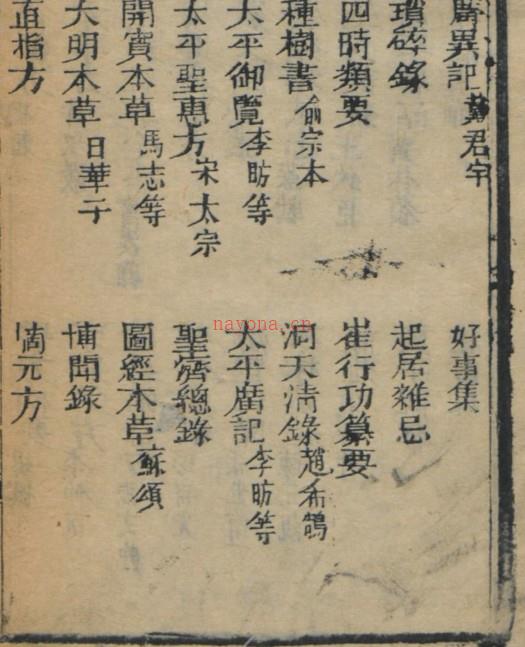 廣異記 戴君孚 好事集
瑣碎錄 起居雜忌
四時類要 崔行功纂要
種樹書 俞宗本 洞天清錄 趙希鵠
太平御覽 李昉等 太平廣記 李昉等
太平聖惠方 宋太宗 聖濟總錄
開寶本草 馬志等 圖經本草 蘇頌
大明本草 日華子 博聞錄
直指方 元方
nayona.cn